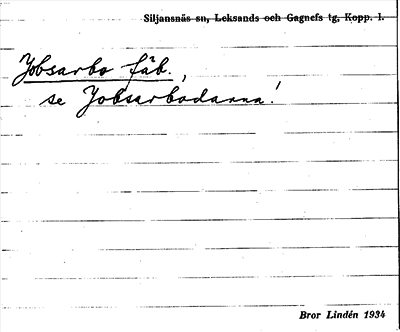 Siljansnäs sn, Leksands och Gagnefs tg, Kopp. l.
Jobsarbo fäb.,
se Jobsarbodarna!
Bror Lindén 1934